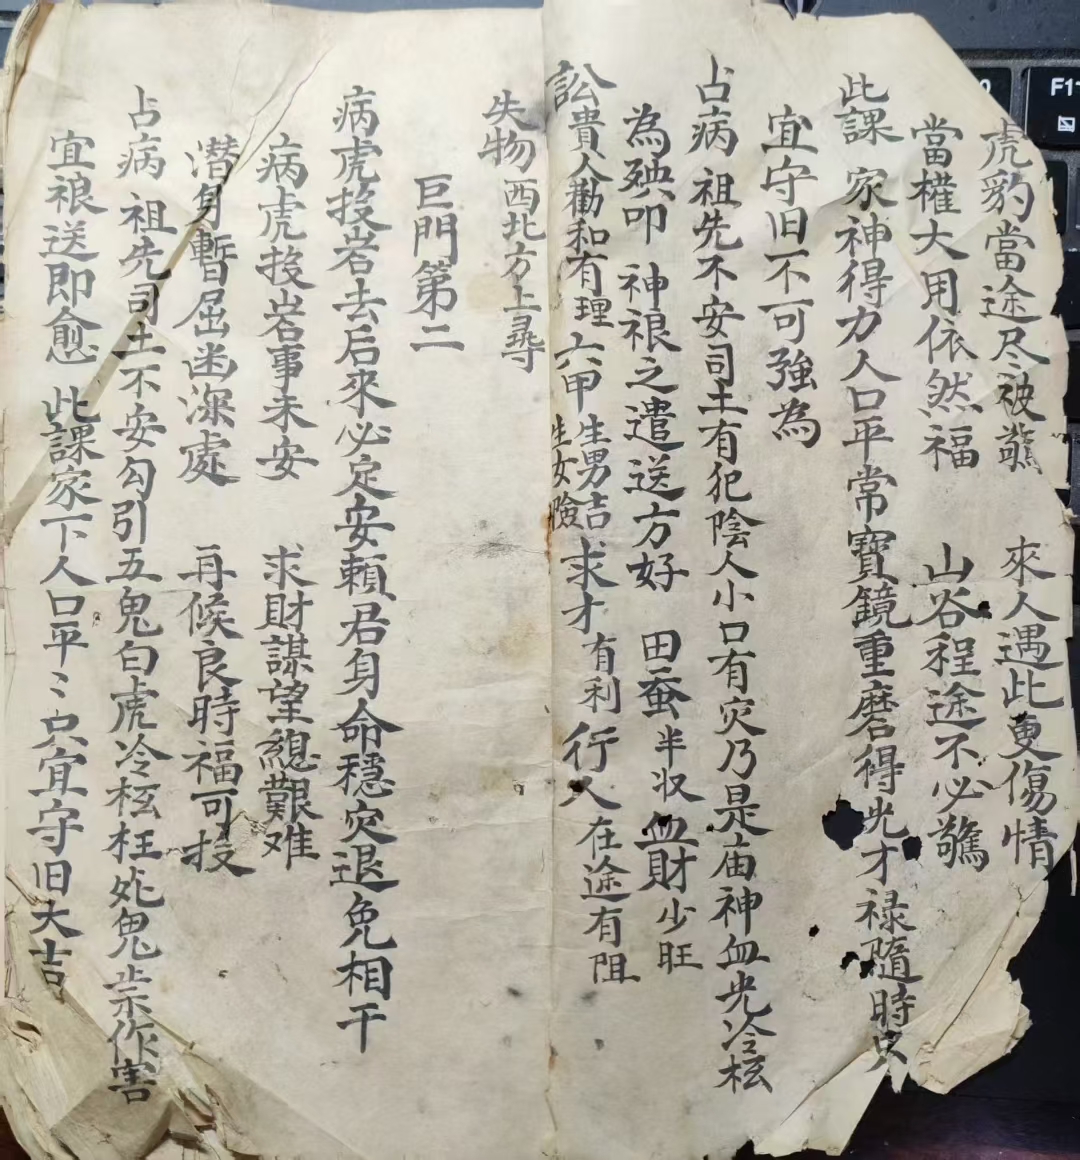 虎豹當途尽被驚 來人遇此更傷情
當權大用依然福 山谷程途不必驚
此課 家神得力人口平常寶鏡重磨得光才禄隨時只
宜守旧不可強為
占病 祖先不安司土有犯陰人小口有灾乃是庙神血光冷枉
為殃叩 神禓之遣送方好 田蚕半収血財少旺
訟貴人勸和有理六甲生男吉生女險求才有利行人在途有阻
失物西北方上尋
巨門第二
病虎投岩去后來必定安賴君身命穩灾退免相干
病虎投岩事未安 求財謀望總艱难
潜身暫屈幽深處 再候良時福可投
占病 祖先司土不安勾引五鬼白虎冷枉枉死鬼祟作害
宜禓送即愈 此課家下人口平〻只宜守旧大吉
F11